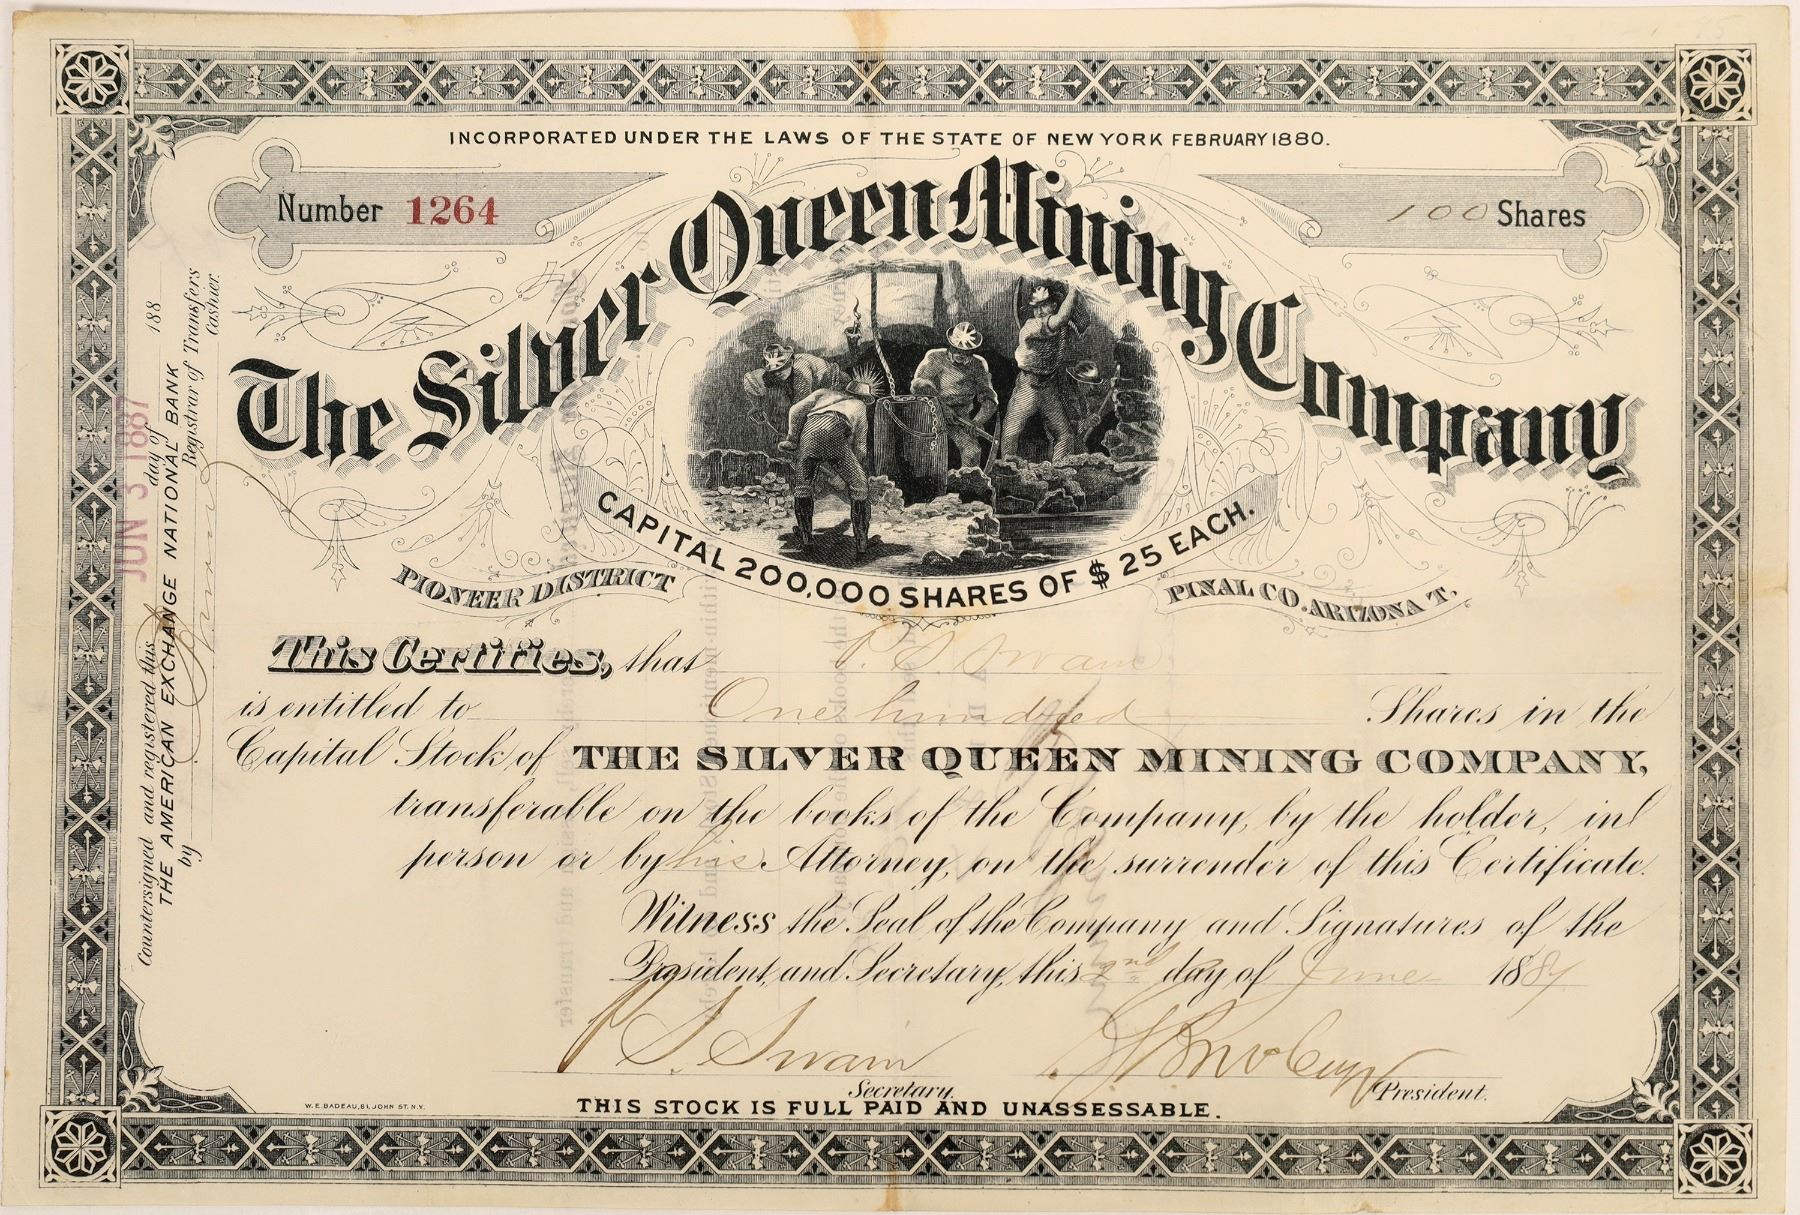 INCORPORATED UNDER THE LAWS OF THE STATE OF NEW YORK FEBRUARY 1880.
Number 1264
100 Shares
The Silver Queen Mining Company
CAPITAL 200,000 SHARES OF $25 EACH.
PIONEER DISTRICT
PINAL CO. ARIZONA T.
This Certifies, that P. S. Swain
is entitled to One hundred Shares in the
Capital Stock of THE SILVER QUEEN MINING COMPANY,
transferable on the books of the Company, by the holder, in
person or by his Attorney, on the surrender of this Certificate.
Witness the Seal of the Company and Signatures of the
President, and Secretary, this 2nd day of June 1887
P. S. Swain
Secretary.
President.
THIS STOCK IS FULL PAID AND UNASSESSABLE.
W. E. BADEAU, 61, JOHN ST. N.Y.
Countersigned and registered this day of 188
JUN 3 1887
THE AMERICAN EXCHANGE NATIONAL BANK
Registrar of Transfers
by Cashier.